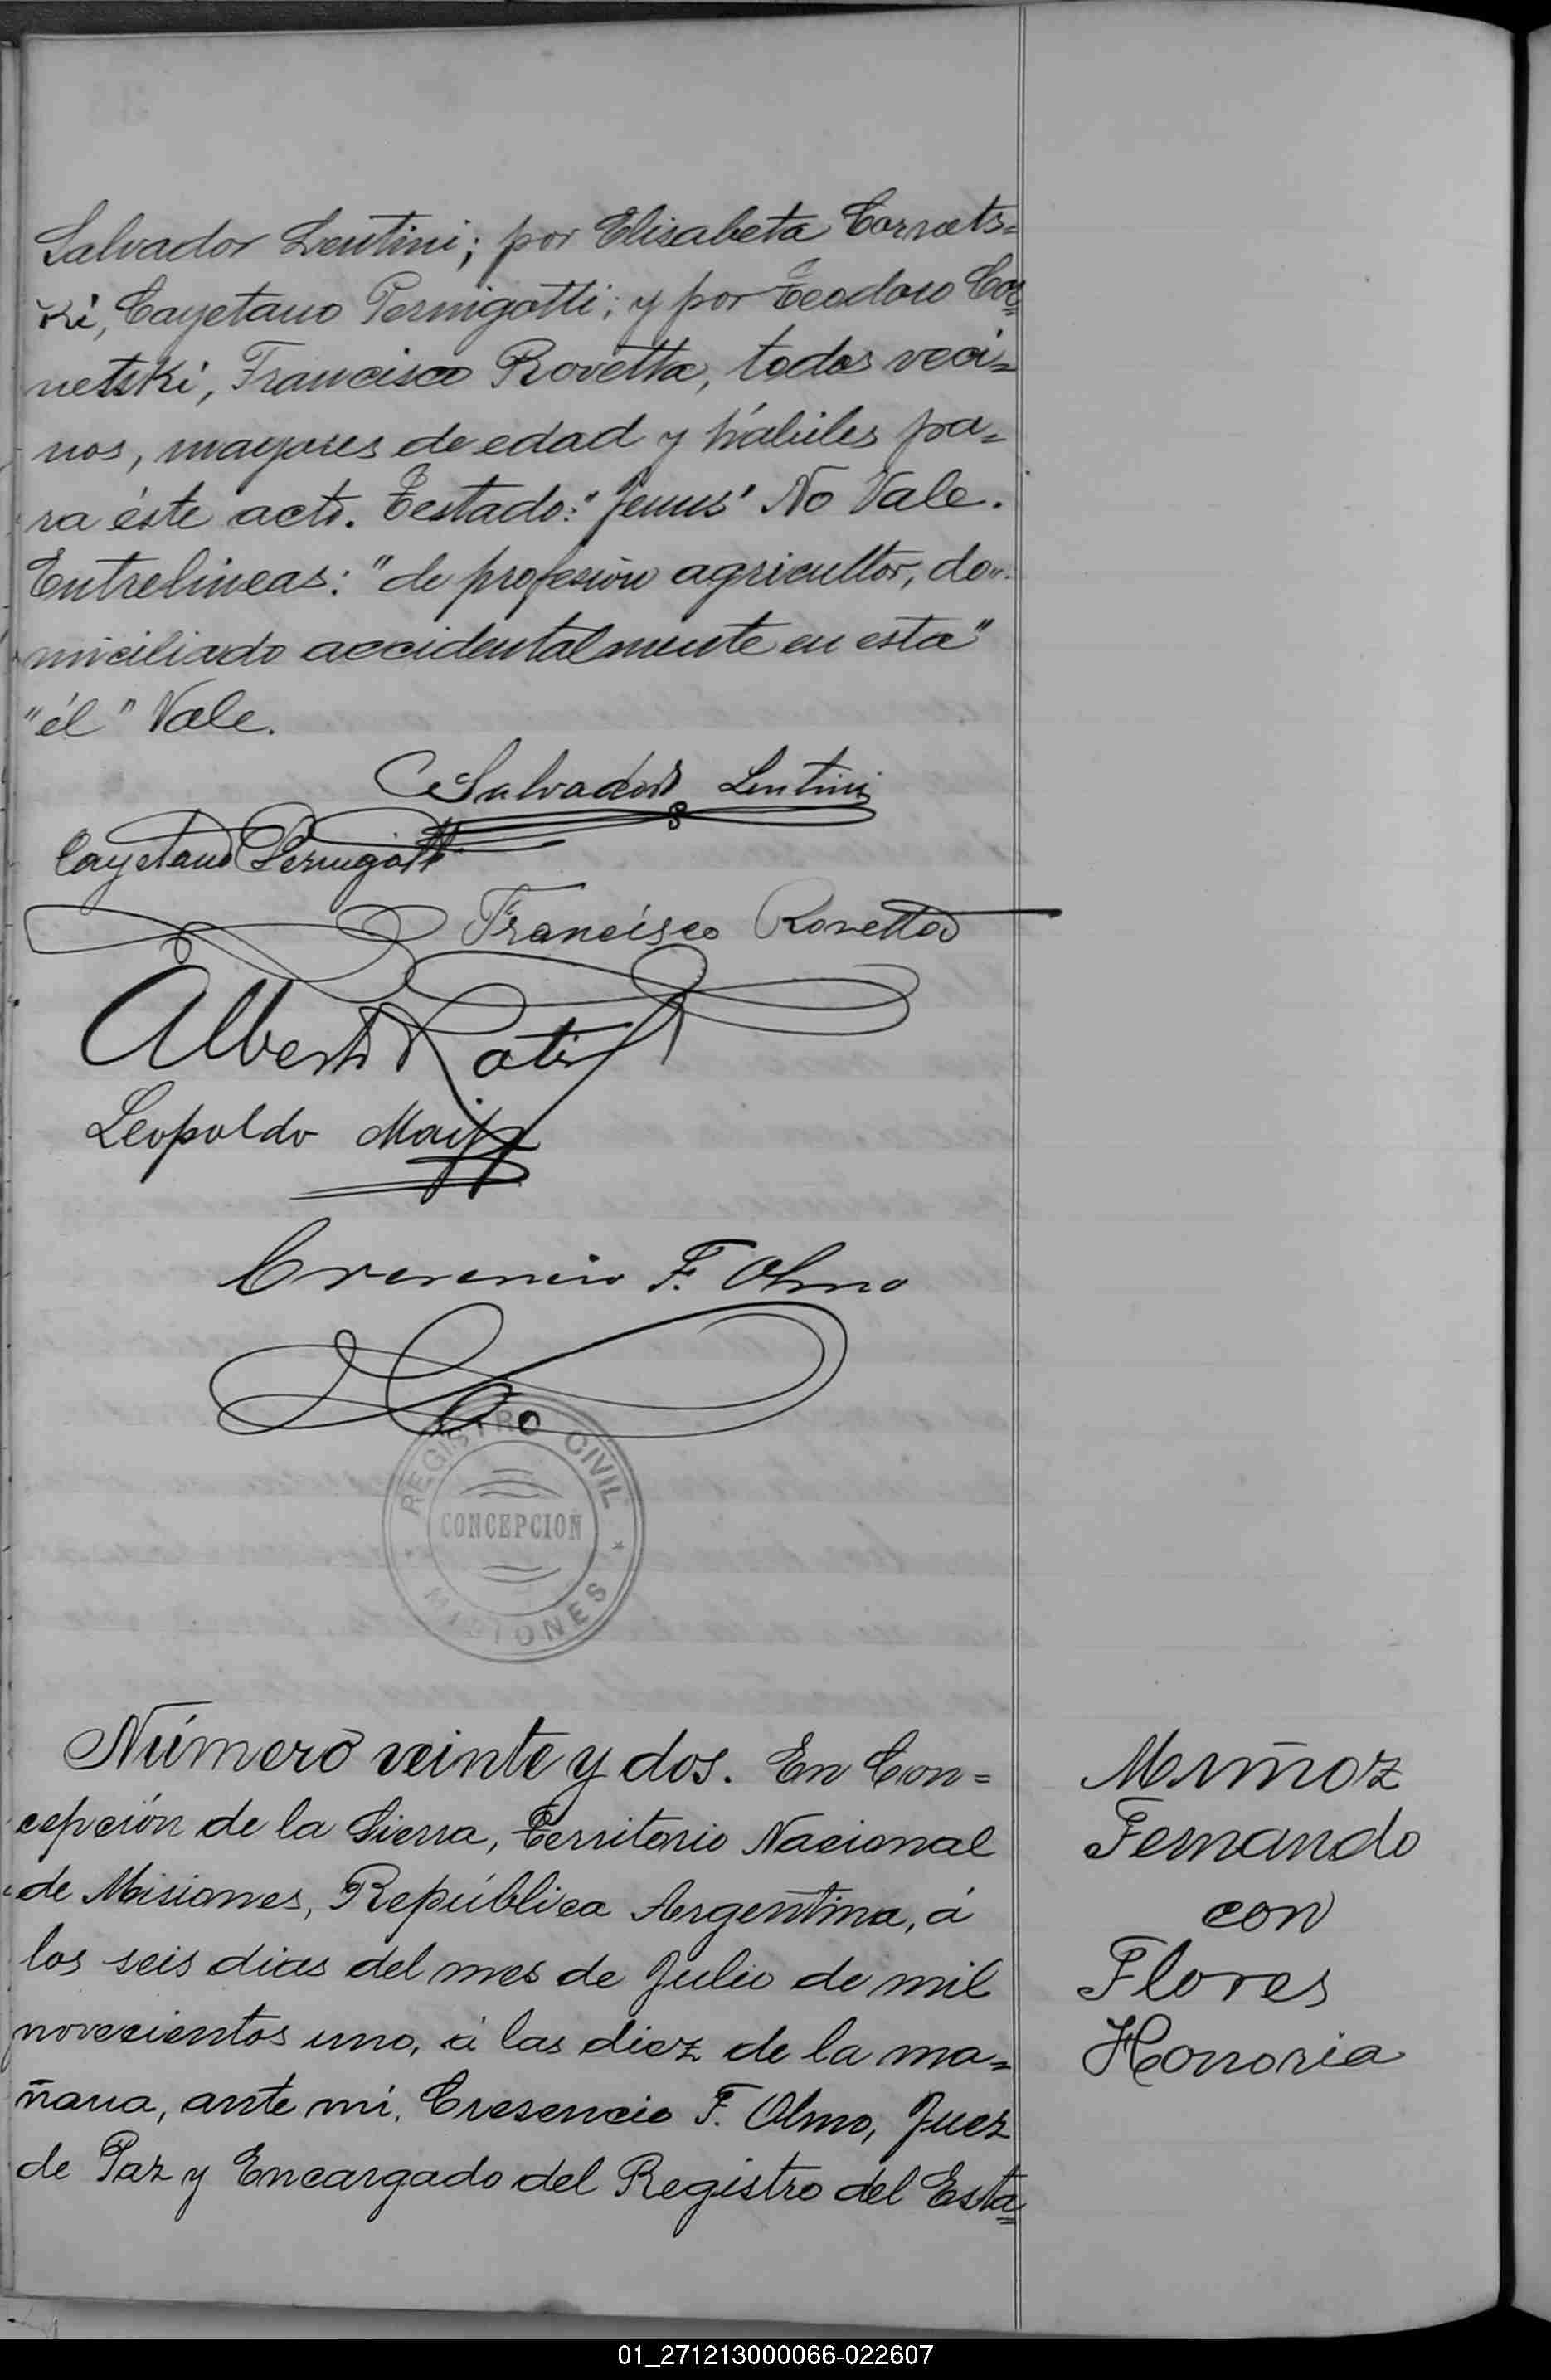 Salvador Lentini; por Elisabeta Cornets=
ki, Cayetano Pernigotti; y por Teodoro Cor=
netski, Francisco Rovetta, todos veci=
nos, mayores de edad y hábiles pa=
ra éste acto. Testado: "Jenus" No Vale.
Entrelineas: "de profesión agricultor, do=
miciliado accidentalmente en esta"
"él" Vale.
Salvador Lentini
Cayetano Pernigotti
Francisco Rovetta
Alberto
Leopoldo
Cresencio F. Olmo
REGISTRO CIVIL
CONCEPCION
MISIONES
Número veinte y dos. En Con=
cepción de la Sierra, Territorio Nacional
de Misiones, República Argentina, á
los seis dias del mes de Julio de mil
novecientos uno, á las diez de la ma=
ñana, ante mí, Cresencio F. Olmo, Juez
de Paz y Encargado del Registro del Esta=
Muñoz
Fernando
con
Flores
Honoria
01_271213000066-022607